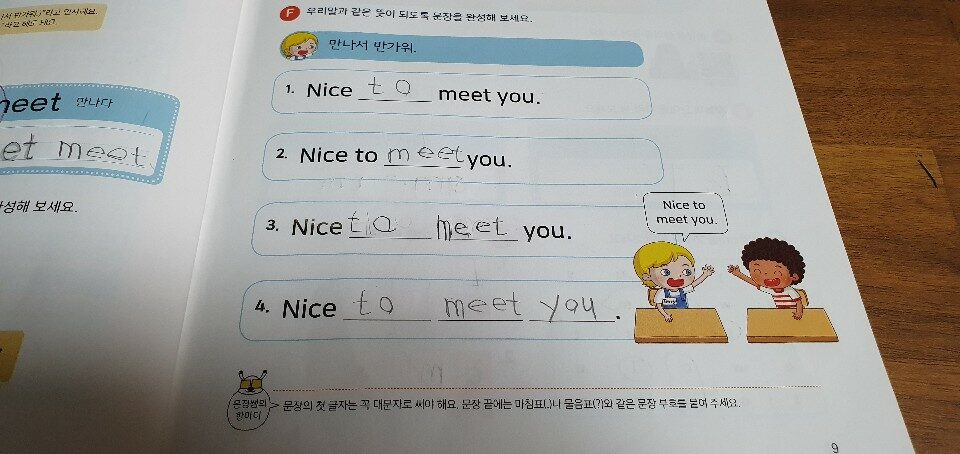 meet 만나다
et meet
성해 보세요.
F 우리말과 같은 뜻이 되도록 문장을 완성해 보세요.
만나서 반가워.
1. Nice to meet you.
2. Nice to meet you.
3. Nice to meet you.
Nice to
meet you.
4. Nice to meet you.
문장쌤의
한마디
문장의 첫 글자는 꼭 대문자로 써야 해요. 문장 끝에는 마침표(.)나 물음표(?)와 같은 문장 부호를 붙여 주세요.
9